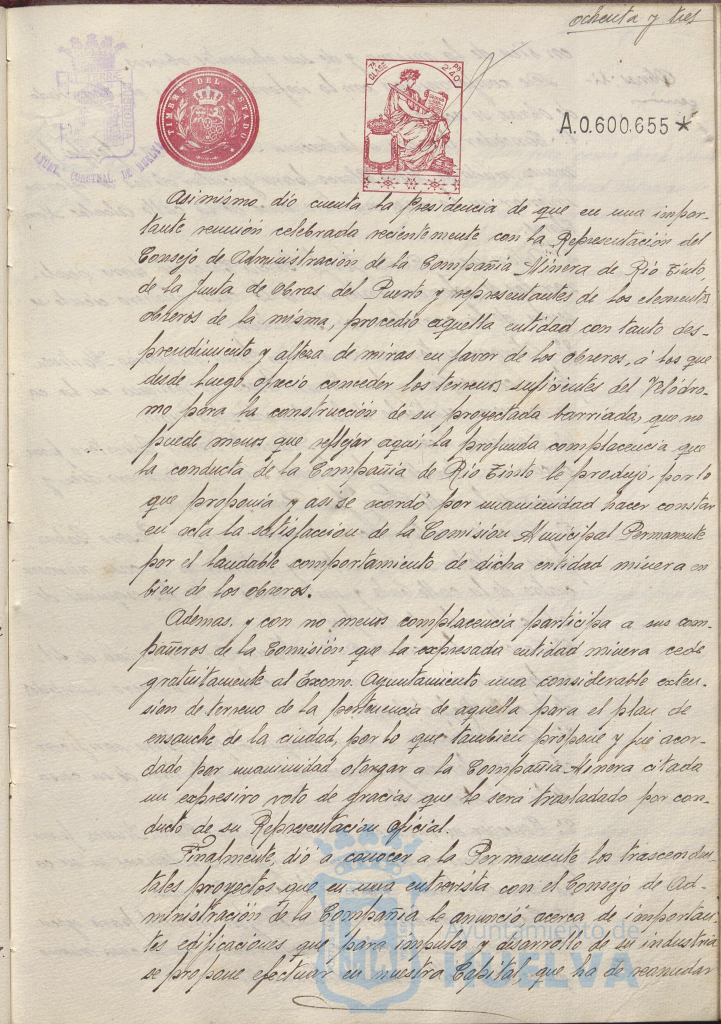 ochenta y tres
TIMBRE DEL ESTADO
7ª CLASE
PTS 2'40
A.0.600.655*
AYUNT. CONSTNAL. DE HUELVA
Asimismo dió cuenta la Presidencia de que en una impor-
tante reunión celebrada recientemente con la Representación del
Consejo de Administración de la Compañia Minera de Rio Tinto,
de la Junta de Obras del Puerto y representantes de los elementos
obreros de la misma, procedio aquella entidad con tanto des-
prendimiento y alteza de miras en favor de los obreros, á los que
desde luego ofrecio conceder los terrenos suficientes del Velódro-
mo para la construcción de su proyectada barriada, que no
puede menos que reflejar aqui, la profunda complacencia que
la conducta de la Compañia de Rio Tinto le produjo, por lo
que proponia y asi se acordó por unanimidad hacer constar
en acta la satisfaccion de la Comision Municipal Permanente
por el laudable comportamiento de dicha entidad minera en
bien de los obreros.
Ademas, y con no menos complacencia participa a sus com-
pañeros de la Comisión que la expresada entidad minera cede
gratuitamente al Excmo. Ayuntamiento una considerable exten-
sion de terreno de la pertenencia de aquella para el plan de
ensanche de la ciudad, por lo que tambien propone y fué acor-
dado por unanimidad otorgar a la Compañia Minera citada
un expresivo voto de gracias que le será trasladado por con-
ducto de su Representacion oficial.
Finalmente, dió a conocer a la Permanente los trascenden-
tales proyectos que en una entrevista con el Consejo de Ad-
ministración de la Compañia le anunció acerca de importan-
tes edificaciones que para impulso y desarrollo de su industria
se propone efectuar en nuestra Capital, que ha de reanudar
Ayuntamiento de
HUELVA